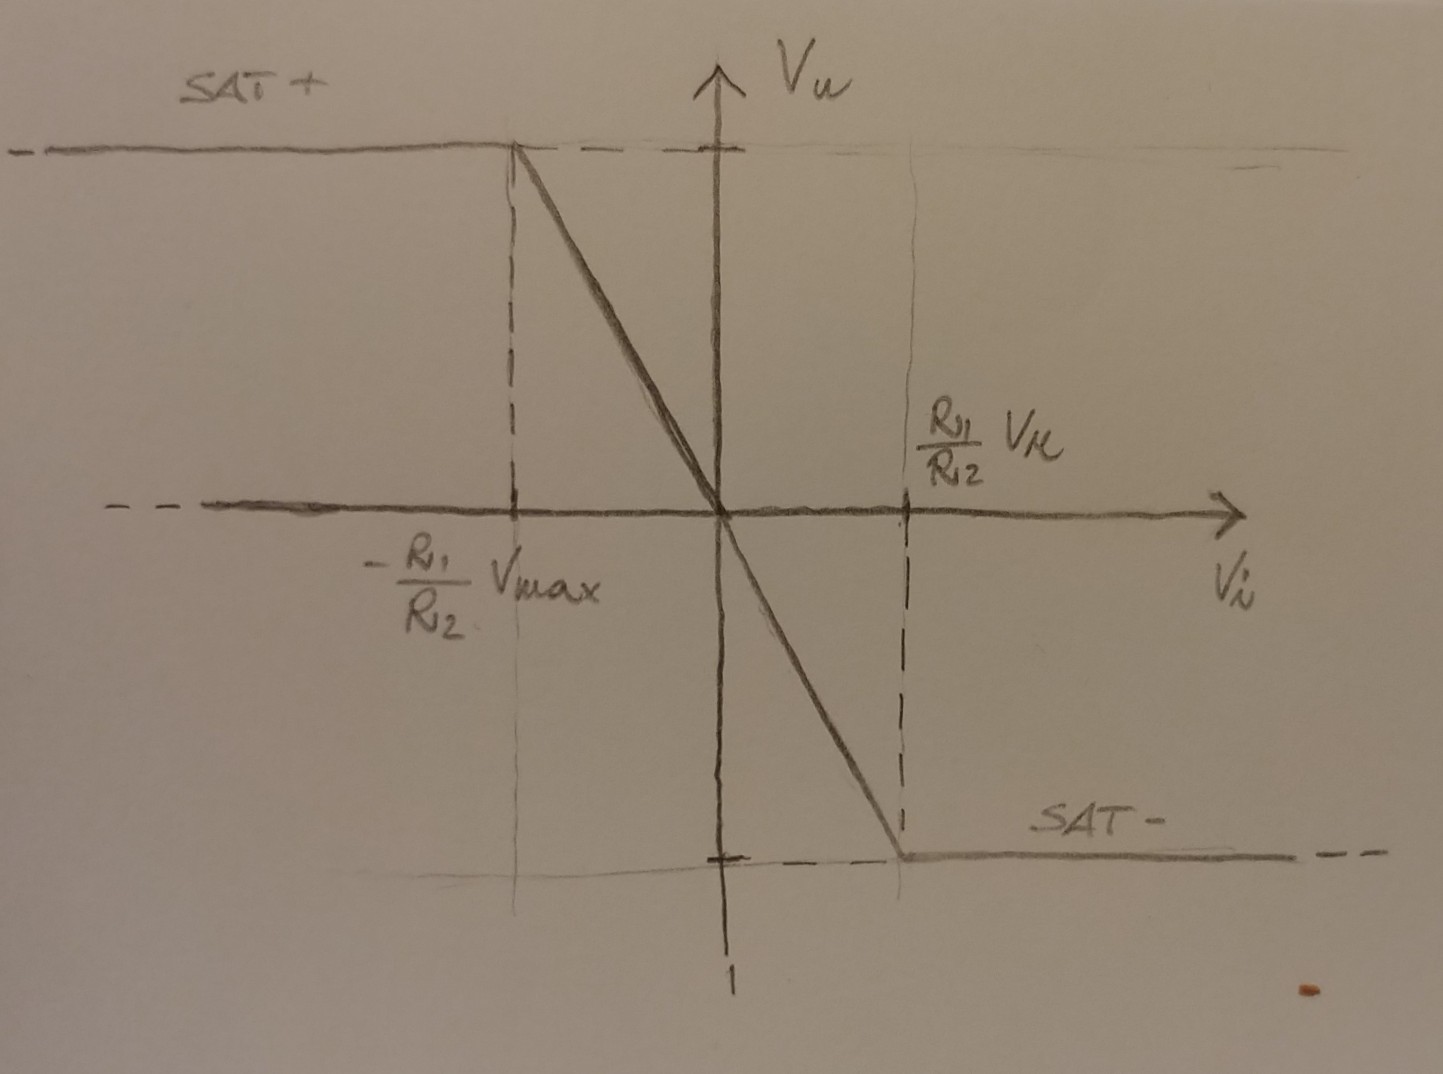 SAT +
Vu
R1
R2
- R1
R2 Vmax
Vi
SAT -